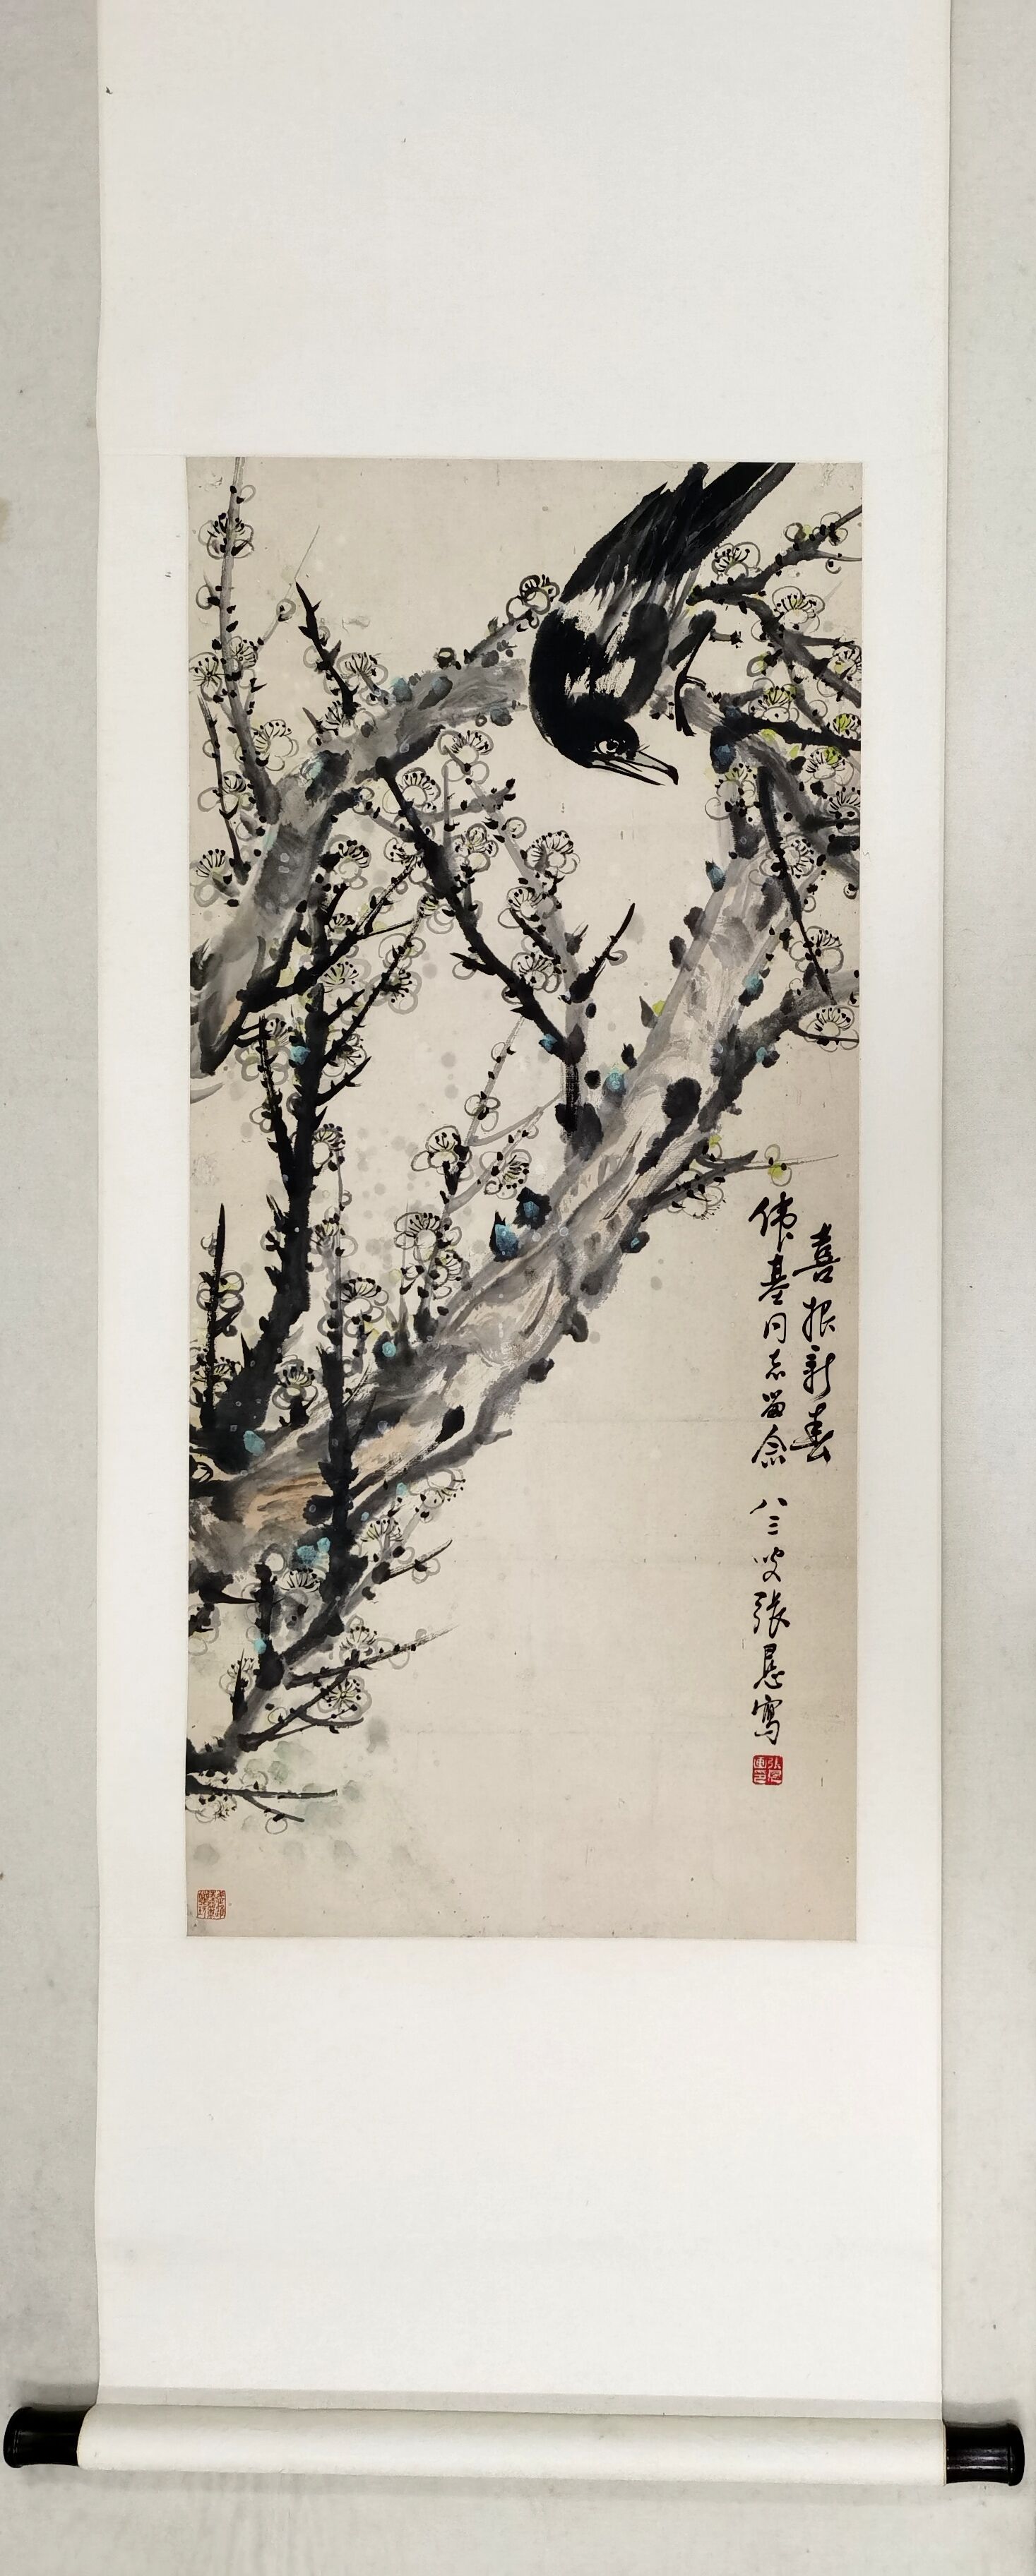 喜报新春
伟基同志留念 八三叟張恳寫